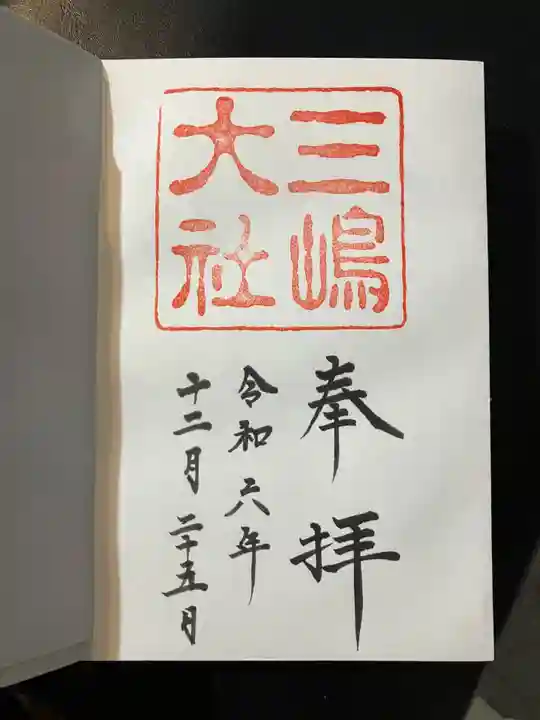 三嶋
大社
奉拝
令和六年
十二月二十五月